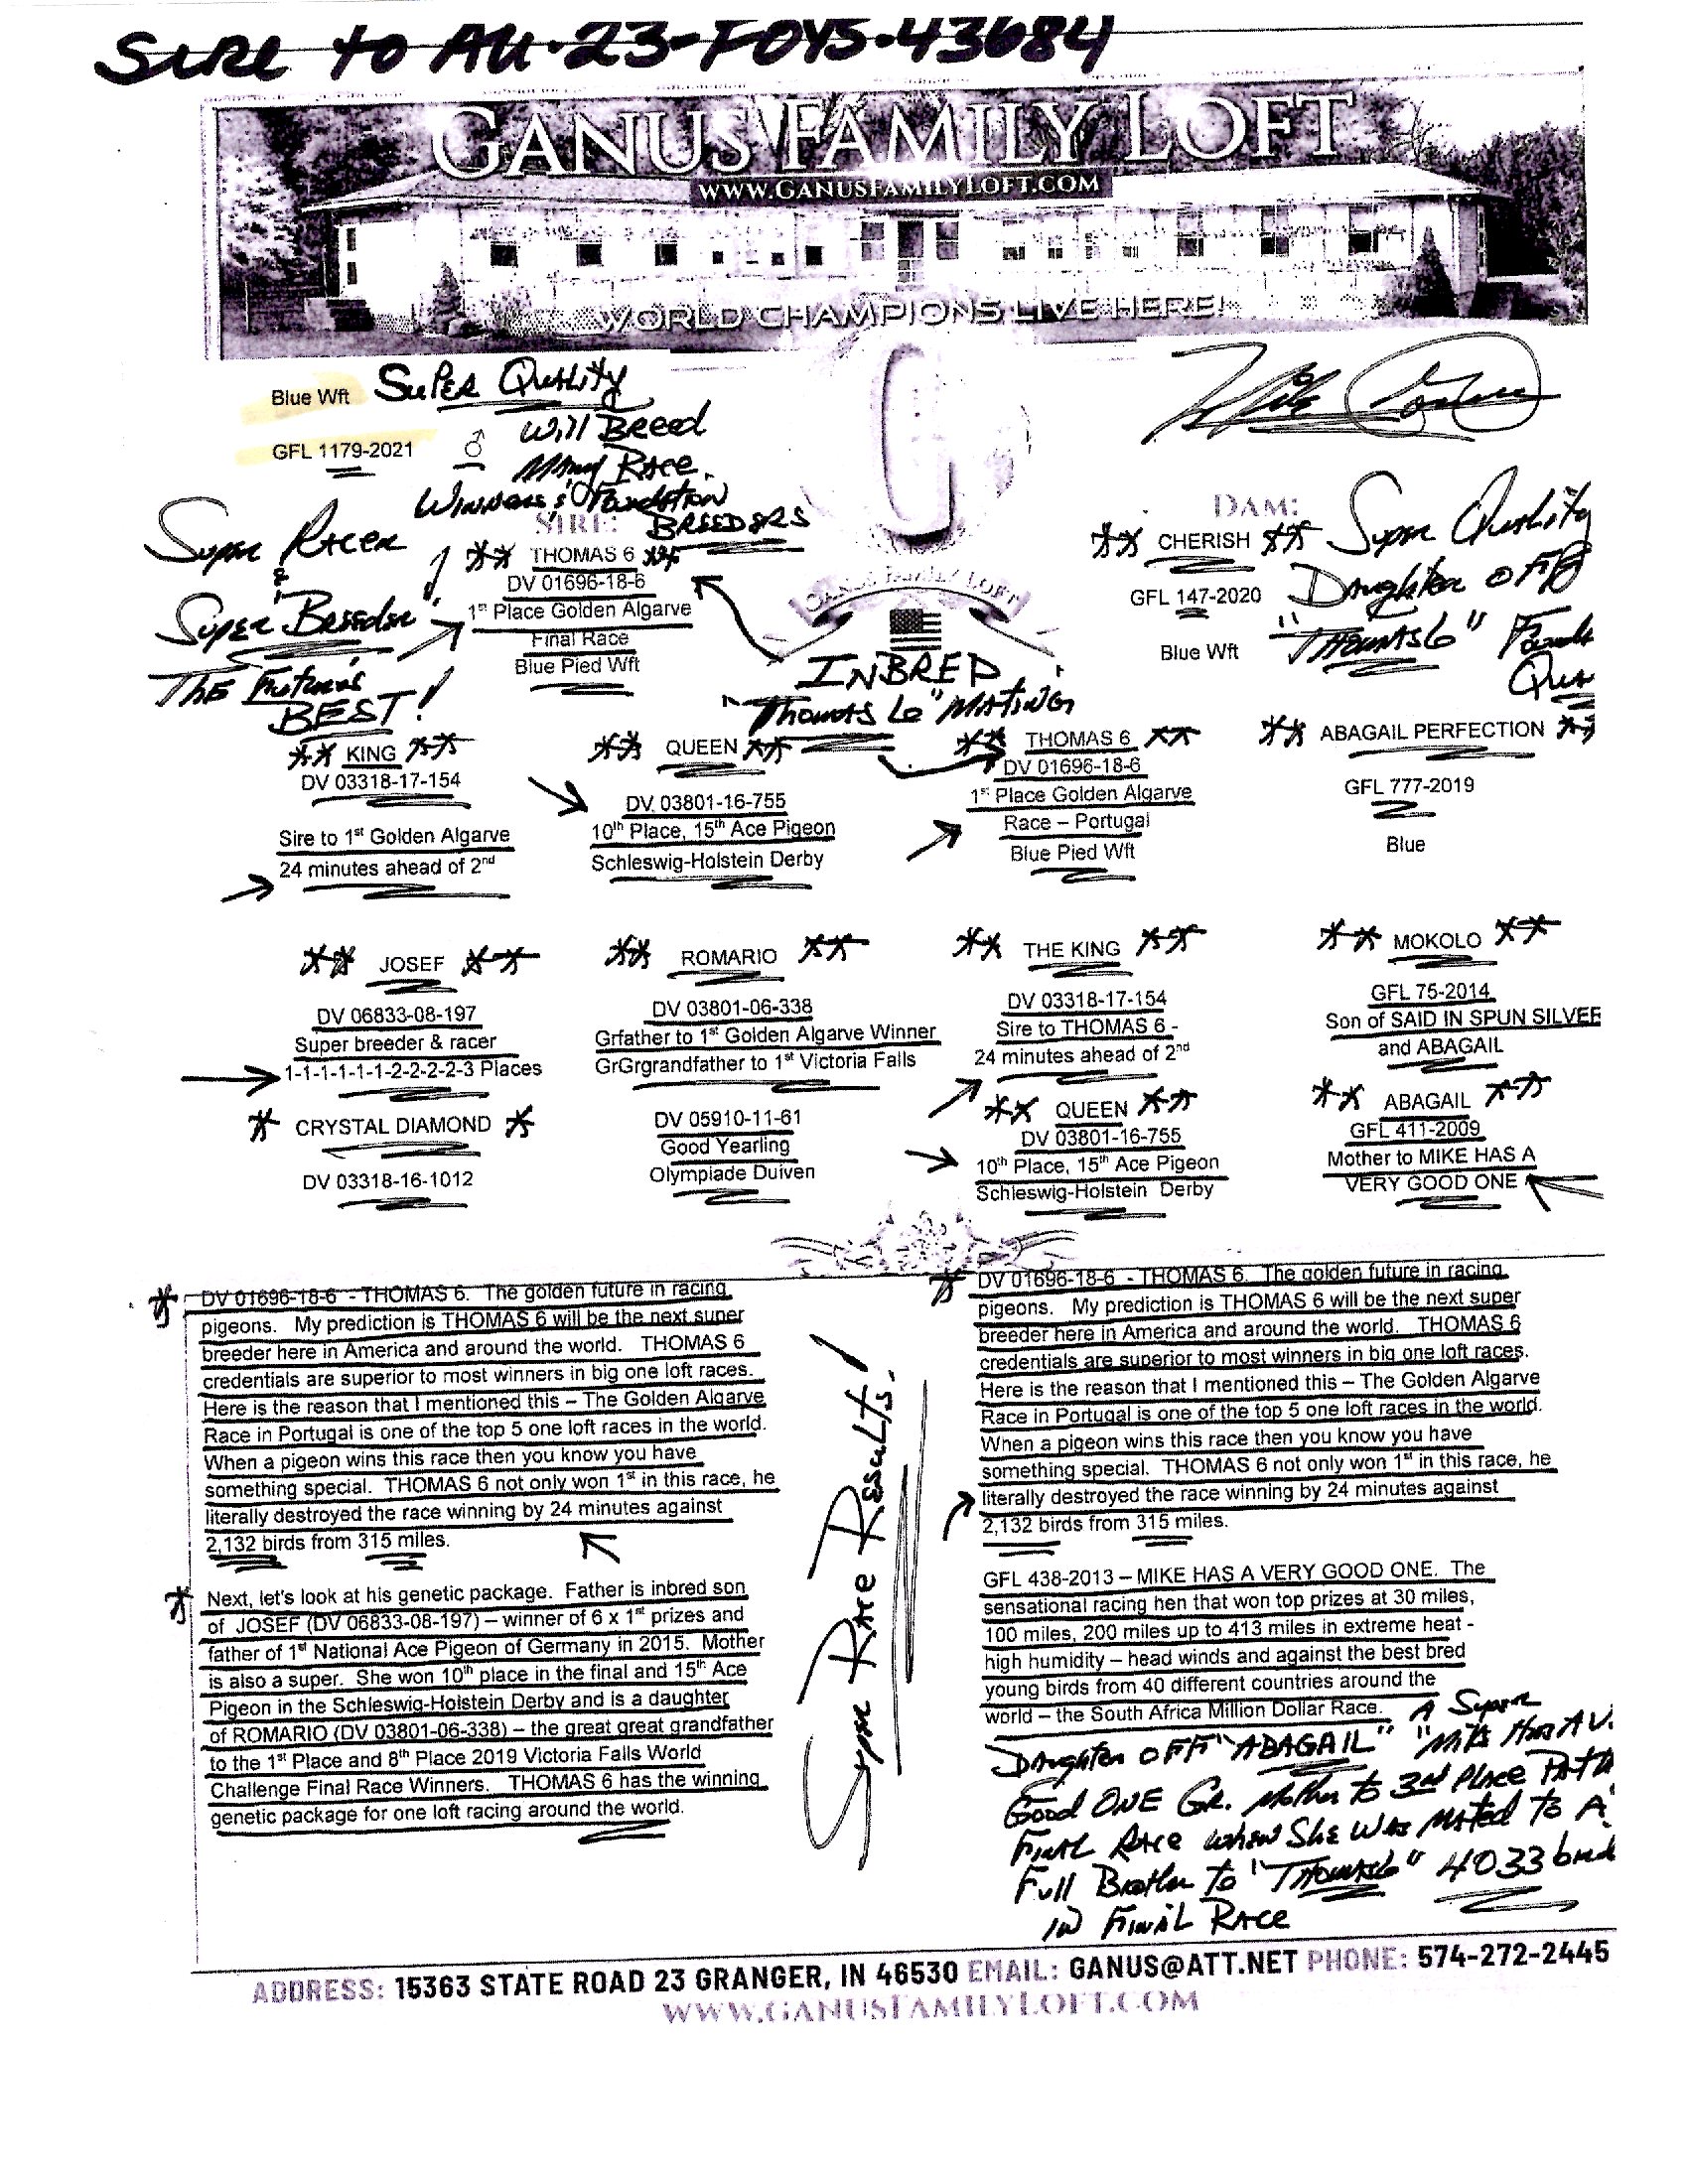 SIRE to AU-23-FOYS-43684
GANUS FAMILY LOFT
WWW.GANUSFAMILYLOFT.COM
WORLD CHAMPIONS LIVE HERE!
Blue Wft
Super Quality
GFL 1179-2021
♂
Will Breed
Many Race
Winners & Foundation
BREEDERS
G
GANUS FAMILY LOFT
Super Racer
&
Super Breeder
The Future's
BEST!
SIRE:
** THOMAS 6 **
DV 01696-18-6
1st Place Golden Algarve
Final Race
Blue Pied Wft
INBRED
"Thomas 6" MATING
DAM:
** CHERISH **
GFL 147-2020
Blue Wft
Super Quality
Daughter OFF
"THOMAS 6"
** KING **
DV 03318-17-154
Sire to 1st Golden Algarve
24 minutes ahead of 2nd
** QUEEN **
DV 03801-16-755
10th Place, 15th Ace Pigeon
Schleswig-Holstein Derby
** THOMAS 6 **
DV 01696-18-6
1st Place Golden Algarve
Race – Portugal
Blue Pied Wft
** ABAGAIL PERFECTION **
GFL 777-2019
Blue
** JOSEF **
DV 06833-08-197
Super breeder & racer
1-1-1-1-1-1-2-2-2-2-3 Places
* CRYSTAL DIAMOND *
DV 03318-16-1012
** ROMARIO **
DV 03801-06-338
Grfather to 1st Golden Algarve Winner
GrGrgrandfather to 1st Victoria Falls
DV 05910-11-61
Good Yearling
Olympiade Duiven
** THE KING **
DV 03318-17-154
Sire to THOMAS 6 -
24 minutes ahead of 2nd
** QUEEN **
DV 03801-16-755
10th Place, 15th Ace Pigeon
Schleswig-Holstein Derby
** MOKOLO **
GFL 75-2014
Son of SAID IN SPUN SILVER
and ABAGAIL
** ABAGAIL **
GFL 411-2009
Mother to MIKE HAS A
VERY GOOD ONE
* DV 01696-18-6 - THOMAS 6. The golden future in racing
pigeons. My prediction is THOMAS 6 will be the next super
breeder here in America and around the world. THOMAS 6
credentials are superior to most winners in big one loft races.
Here is the reason that I mentioned this – The Golden Algarve
Race in Portugal is one of the top 5 one loft races in the world.
When a pigeon wins this race then you know you have
something special. THOMAS 6 not only won 1st in this race, he
literally destroyed the race winning by 24 minutes against
2,132 birds from 315 miles.
* Next, let's look at his genetic package. Father is inbred son
of JOSEF (DV 06833-08-197) – winner of 6 x 1st prizes and
father of 1st National Ace Pigeon of Germany in 2015. Mother
is also a super. She won 10th place in the final and 15th Ace
Pigeon in the Schleswig-Holstein Derby and is a daughter
of ROMARIO (DV 03801-06-338) – the great great grandfather
to the 1st Place and 8th Place 2019 Victoria Falls World
Challenge Final Race Winners. THOMAS 6 has the winning
genetic package for one loft racing around the world.
Super Race Results!
* DV 01696-18-6 - THOMAS 6. The golden future in racing
pigeons. My prediction is THOMAS 6 will be the next super
breeder here in America and around the world. THOMAS 6
credentials are superior to most winners in big one loft races.
Here is the reason that I mentioned this – The Golden Algarve
Race in Portugal is one of the top 5 one loft races in the world.
When a pigeon wins this race then you know you have
something special. THOMAS 6 not only won 1st in this race, he
literally destroyed the race winning by 24 minutes against
2,132 birds from 315 miles.
GFL 438-2013 – MIKE HAS A VERY GOOD ONE. The
sensational racing hen that won top prizes at 30 miles,
100 miles, 200 miles up to 413 miles in extreme heat -
high humidity – head winds and against the best bred
young birds from 40 different countries around the
world – the South Africa Million Dollar Race. A Super
Daughter OFF "ABAGAIL" "Mike Has A V.
Good ONE Gr. Mother to 3rd Place
Final Race when She Was Mated to A
Full Brother to "THOMAS 6" 4033 birds
in Final Race
ADDRESS: 15363 STATE ROAD 23 GRANGER, IN 46530 EMAIL: GANUS@ATT.NET PHONE: 574-272-2445
WWW.GANUSFAMILYLOFT.COM